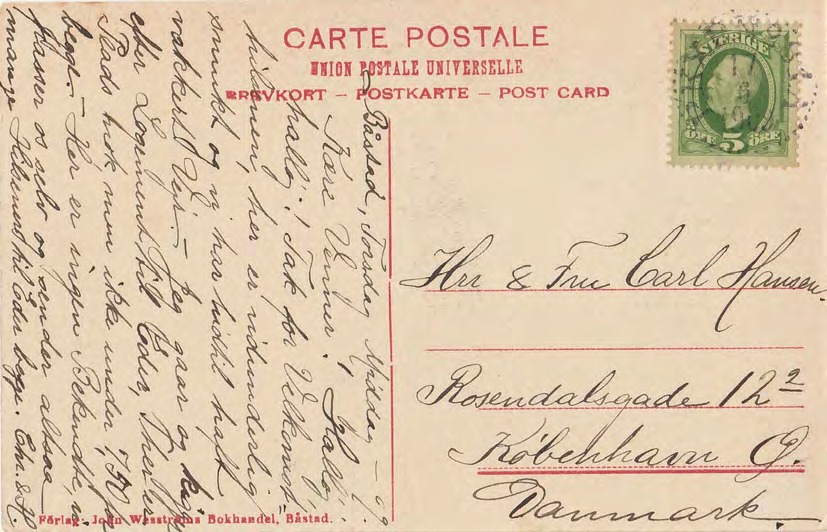 CARTE POSTALE
UNION POSTALE UNIVERSELLE
BREVKORT – POSTKARTE – POST CARD
SVERIGE
5
ÖRE
Båstad, Torsdag Middag –
Kære Venner! Hallo,
hallo! Tak for Velkomst-
hilsenen, her er vidunderlig
smukt og vi har hidtil haft
vakkert Vejr. – Jeg gaar og kigger
efter Logement til Eder, Thesbu
Plads nok men ikke under 7,50 pr
begge. – Her er ingen Bekendte vi
passer os selv og sender altsaa
mange Hilsener til Eder begge.
Hrr & Fru Carl Hansen.
Rosendalsgade 12²
København Ø.
Danmark
Förlag: John Wesströms Bokhandel, Båstad.